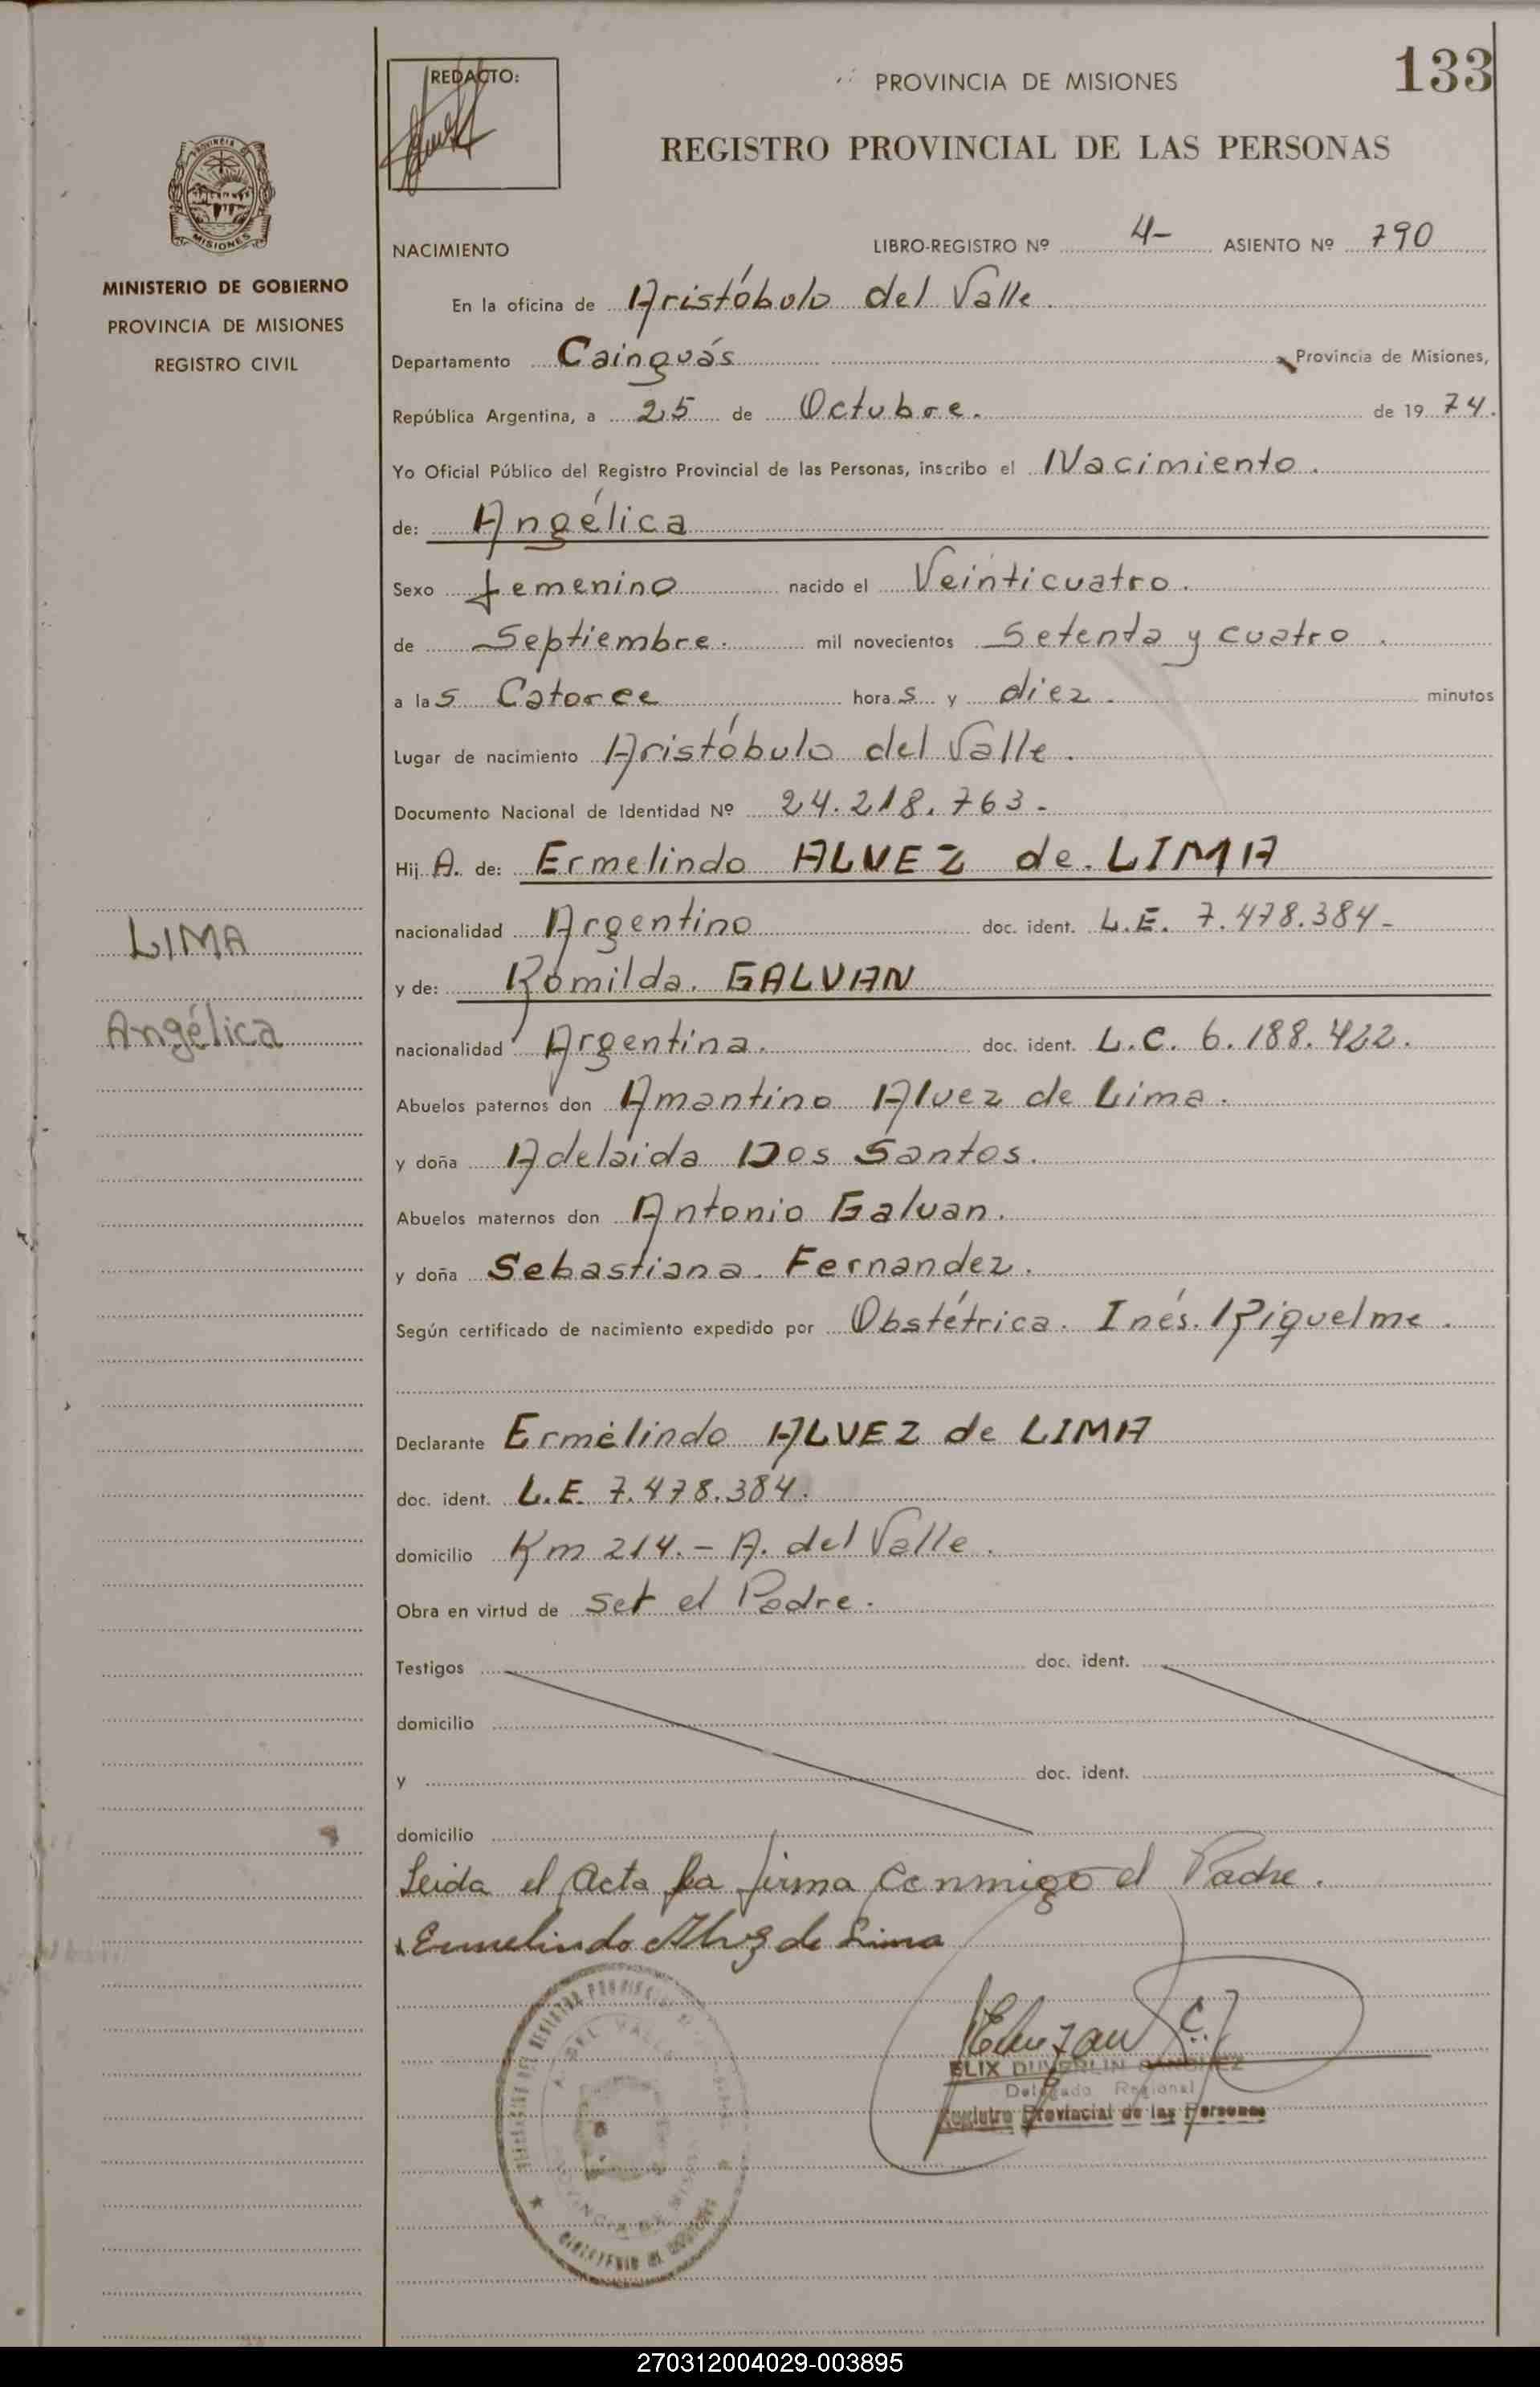 133
REDACTO:
PROVINCIA DE MISIONES
REGISTRO PROVINCIAL DE LAS PERSONAS
MISIONES
MINISTERIO DE GOBIERNO
PROVINCIA DE MISIONES
REGISTRO CIVIL
NACIMIENTO LIBRO-REGISTRO Nº 4- ASIENTO Nº 790
En la oficina de Aristóbulo del Valle.
Departamento Cainguás Provincia de Misiones,
República Argentina, a 25 de Octubre. de 19 74.
Yo Oficial Público del Registro Provincial de las Personas, inscribo el Nacimiento.
de: Angélica
Sexo femenino nacido el Veinticuatro.
de Septiembre. mil novecientos Setenta y cuatro.
a las Catorce horas y diez. minutos
Lugar de nacimiento Aristóbulo del Valle.
Documento Nacional de Identidad Nº 24.218.763.-
Hij A. de: Ermelindo ALVEZ de LIMA
nacionalidad Argentino doc. ident. L.E. 7.478.384-
y de: Romilda. GALVAN
nacionalidad Argentina. doc. ident. L.C. 6.188.422.
LIMA
Angélica
Abuelos paternos don Amantino Alvez de Lima.
y doña Adelaida Dos Santos.
Abuelos maternos don Antonio Galvan.
y doña Sebastiana. Fernandez.
Según certificado de nacimiento expedido por Obstétrica. Inés. Riquelme.
Declarante Ermelindo ALVEZ de LIMA
doc. ident. L.E. 7.478.384.
domicilio Km 214.- A. del Valle.
Obra en virtud de ser el Padre.
Testigos doc. ident.
domicilio
y doc. ident.
domicilio
Leida el Acta la firma conmigo el Padre.
Ermelindo Alvez de Lima
ELIX DUVERLIN SANCHEZ
Delegado Regional
Registro Provincial de las Personas
270312004029-003895